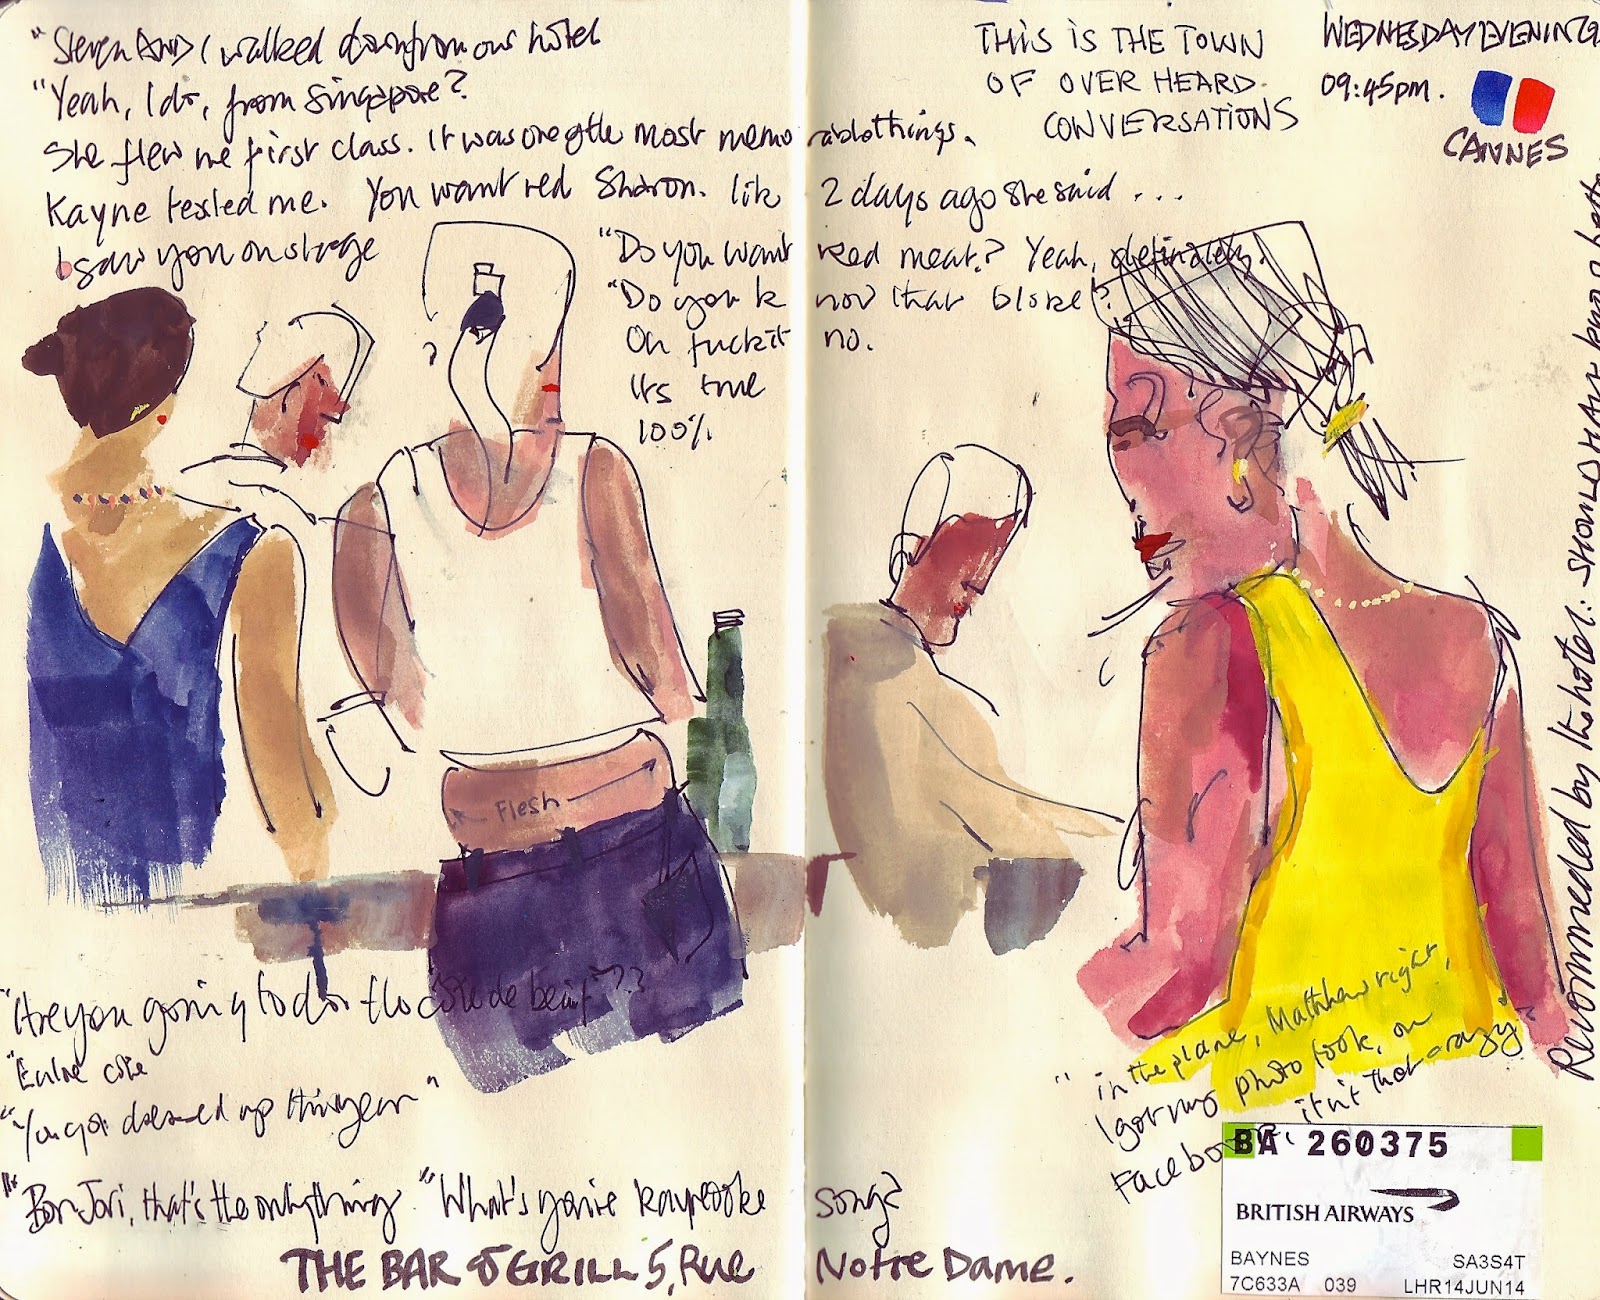 "Steven AND I walked down from our hotel
"Yeah, I do, from Singapore?
She flew me first class. It was one of the most memorable things.
Kayne texted me. You want red Sharon. like 2 days ago she said . . .
I saw you on stage
"Do you want red meat? Yeah, definitely.
"Do you know that bloke?
Oh fuck it no.
Its true
100%
THIS IS THE TOWN
OF OVER HEARD.
CONVERSATIONS
WEDNESDAY EVENING
09:45pm.
CANNES
Flesh
"Are you going to do the côte de beouf"??
"Entre côte
"You got dressed up this year"
"Bon Jovi, that's the only thing "What's your karaoke song?
THE BAR & GRILL 5, Rue Notre Dame.
"in the plane, Matthew right,
I got my photo took, on
Facebook, isn't that crazy
Recommeded by the hotel: SHOULD HAVE been
BA 260375
BRITISH AIRWAYS
BAYNES SA3S4T
7C633A 039 LHR14JUN14